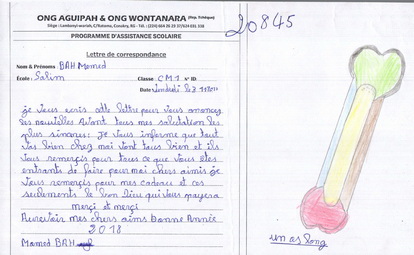 ONG AGUIPAH & ONG WONTANARA (Rep. Tchèque)
Siège : Lambanyi-warriah, C/Ratoma, Conakry, RG - Tél. (224) 664 36 29 37/624 031 338
PROGRAMME D'ASSISTANCE SCOLAIRE
20845
Lettre de correspondance
Nom & Prénoms BAH Mamed
École : Salim Classe CM1 N° ID:
Date Vendredi le
je vous ecris cette lettre pour vous anoncer
les nouvelles Avant tous mes salutation les
plus sinceres. Je vous informe que tout
vas bien chez moi vont tous bien et ils
vous remerçis pour tous ce que vous êtes
entrants de faire pour moi chers aimis je
vous remerçis pour mes cadeaux et ces
seulements le bon Dieu qui vous payera
merçi et merçi
Aurevoir mes chers aims bonne Année
2018
Mamed BAH
un os long